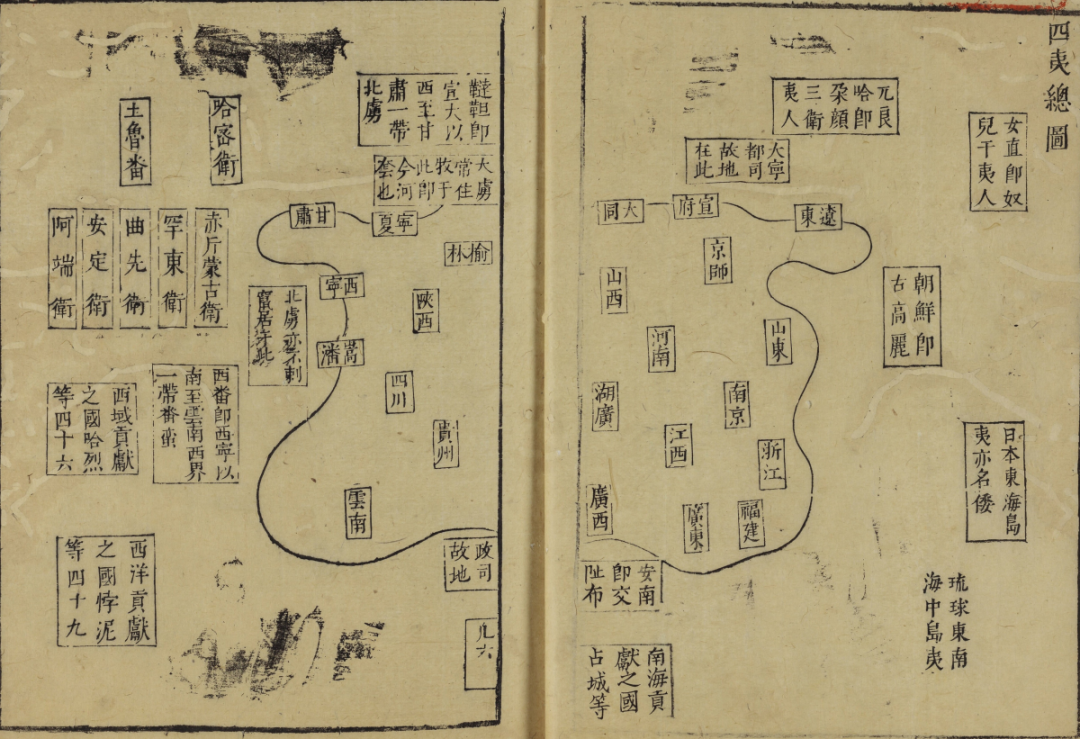 四夷總圖
女直即奴
兒干夷人
朝鮮即
古高麗
日本東海島
夷亦名倭
琉球東南
海中島夷
兀良
哈即
朶顏
三衛
夷人
大寧
都司
故地
在此
遼東
宣府
大同
京師
山西
山東
河南
南京
湖廣
江西
浙江
福建
廣東
廣西
安南
即交
阯布
政司
故地
南海貢
獻之國
占城等
凡六
韃靼即
宣大以
西至甘
肅一帶
北虜
大虜
常住
牧于
此即
今河
套也
寧夏
甘肅
榆林
陝西
西寧
蒿潘
四川
貴州
雲南
北虜亦不剌
竄居于此
哈密衛
土魯番
赤斤蒙古衛
罕東衛
曲先衛
安定衛
阿端衛
西番即西寧以
南至雲南西界
一帶番蠻
西域貢獻
之國哈烈
等四十六
西洋貢獻
之國悖泥
等四十九